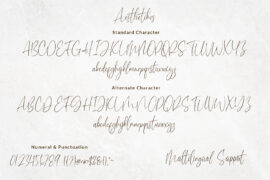 Aesthetiks
Standard Character
ABCDEFGHIJKLMNOPQRSTUVWXYZ
abcdefghijklmnopqrstuvwxyz
Alternate Character
ABCDEFGHIJKLMNOPQRSTUVWXYZ
abcdefghijklmnopqrstuvwxyz
Numeral & Punctuation
0123456789
Multilingual Support